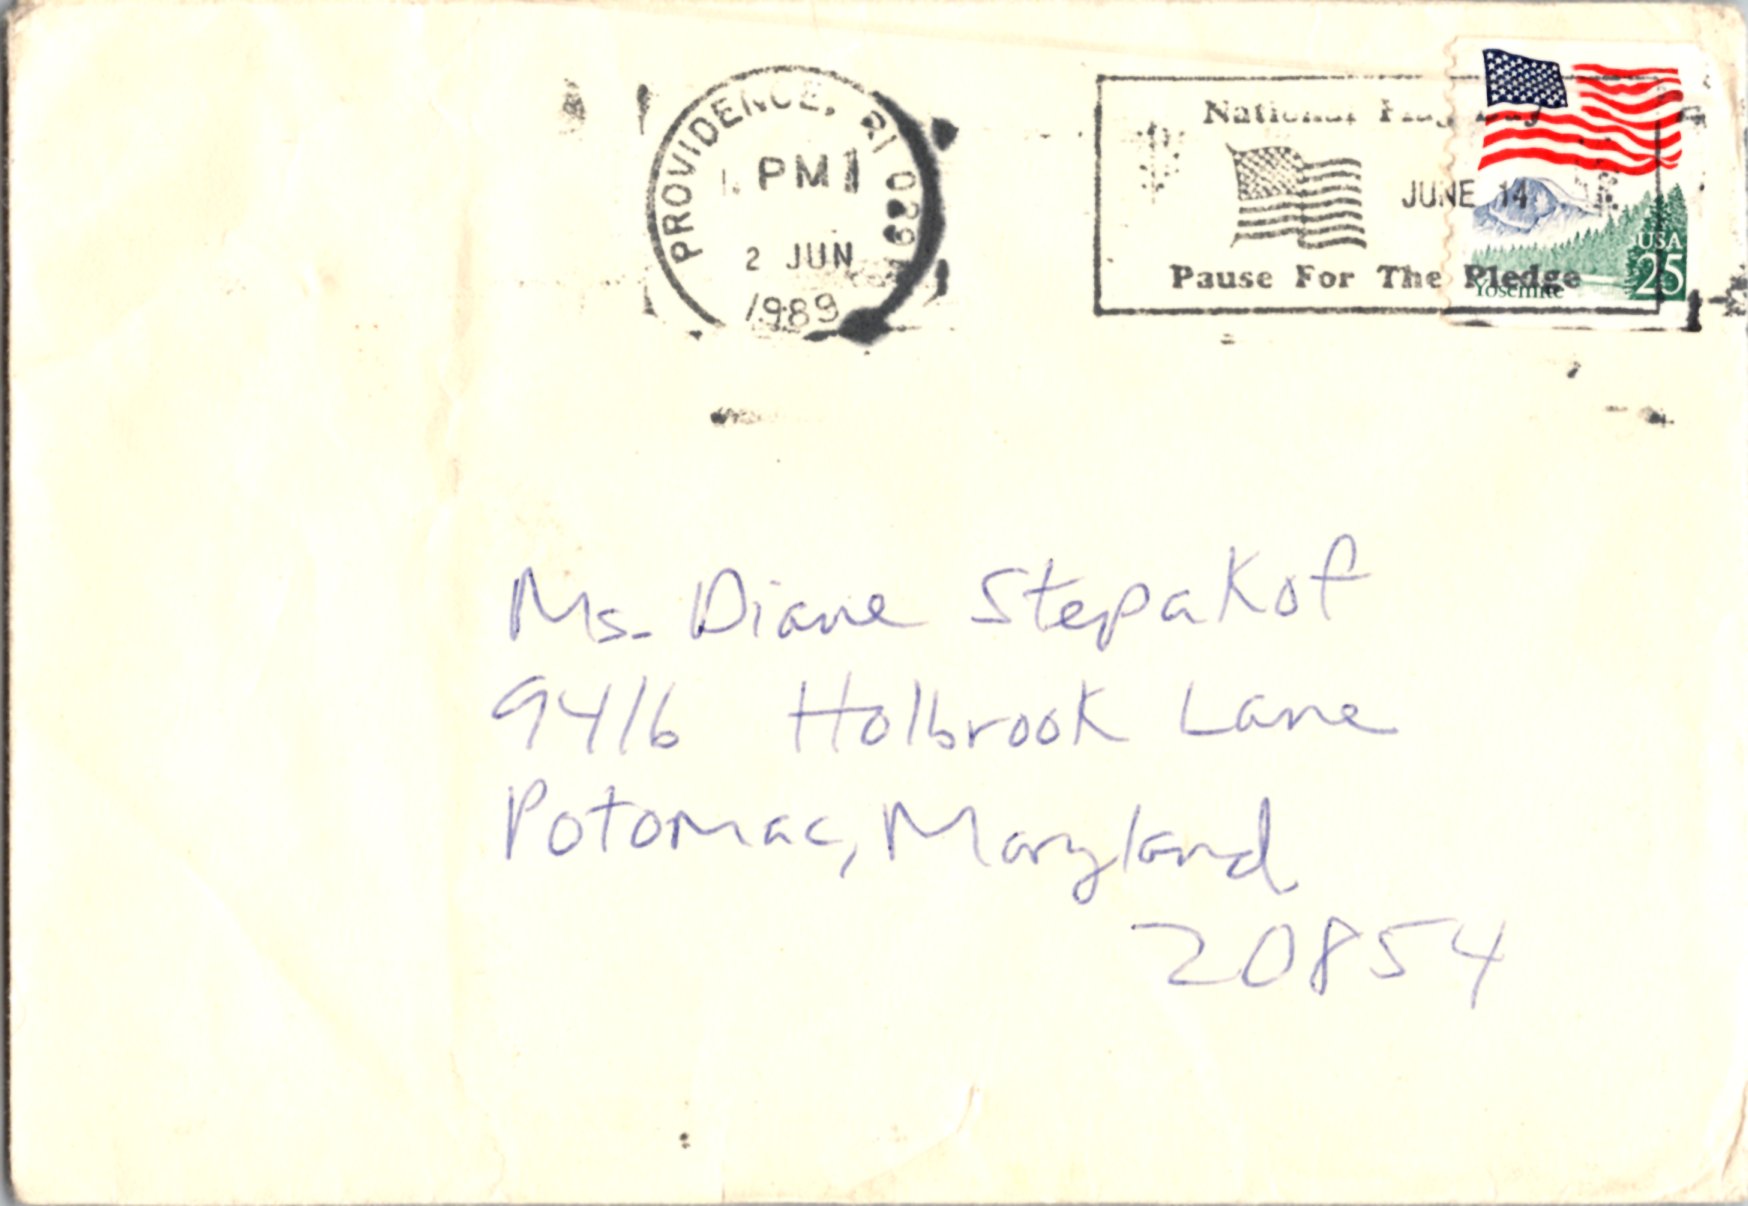 PROVIDENCE, RI 029
PM
2 JUN
1989
National Flag Day
JUNE 14
Pause For The Pledge
USA
25
Yosemite
Ms. Diane Stepakof
9416 Holbrook Lane
Potomac, Maryland
20854